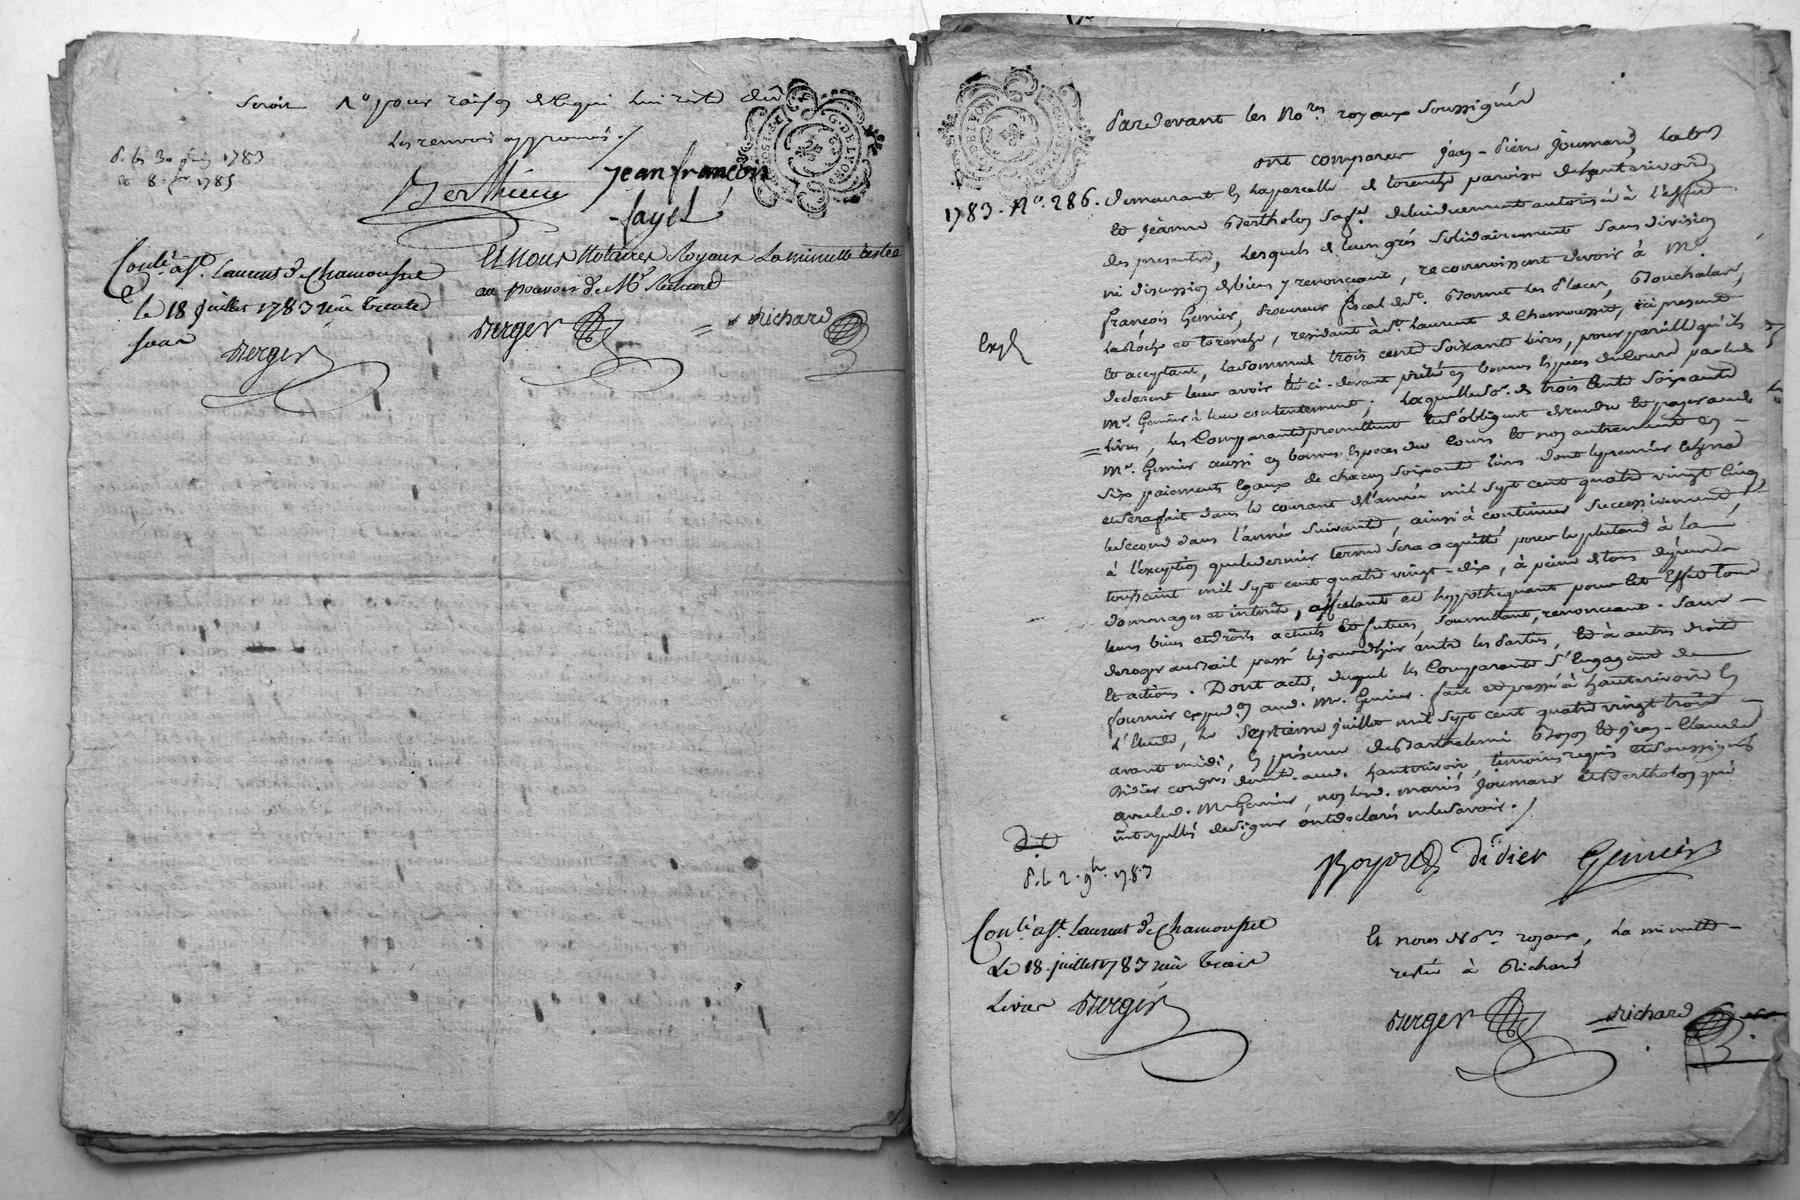 seroit N.º pour raison de ce qui lui reste dû
les renvois approuvés ./
d. les 30 1783
et 8. 1785
Berthieu Jean françois
fayel
Conlé. à St. Laurent de Chamousset
le 18 juillet 1783 reçu trente
sous
Berger
Et nous Notaires Royaux La minutte restée
au pouvoir de Me Richard
Berger
Richard
G. DE LYON
Pardevant les Nores. royaux soussignés
ont comparu Jean-Pierre Joumard, labr
1783. No. 286.
demeurant en la parcelle de torenche paroisse d'hauterivoire
et Jeanne Bertholon sa fe. de lui duement autorisée à l'effet
des presentes, lesquels de leurs grés solidairement sans division
ni discussion de biens y renonceant, reconnoissent devoir à Me.
françois Genier, Procureur fiscal de Bonnet les Places, Souchalar,
la Roche et torenche, résidant à St. Laurent de Chamousset, ici present
Exp
et acceptant, la somme de trois cents soixante livres, pour pareille qu'ils
declarent leur avoir été ci-devant prêtée en bonnes Especes du Cours par led.
Me. Genier à leur contentement ; laquelle so. de trois cents soixante
livres, les Comparants promettent et s'obligent de rendre et payer aud.
Me. Genier aussi en bonnes Especes du Cours et non autrement en
six paiements Egaux de chacun soixante livres dont le premier
et sera fait dans le courant de l'année mil sept cent quatre vingt cinq,
le second dans l'année suivante, ainsi à continuer successivement
à l'exception que le dernier terme sera acquitté pour le plutard à la
toussaint mil sept cent quatre vingt-dix, à peine de tous depends
domages et intérêts, affectant et hyppothéquant pour cet Effet tous
leurs biens et droits actuels et futurs, soumettant, renonceant. sans
deroger au bail passé le jourd'hui entre les Parties, et à autres droits
Et actions. Dont acte, duquel les Comparants s'Engagent de
fournir expedon. aud. Me. Genier. fait et passé à hauterivoire En
l'Etude, le septieme juillet mil sept cent quatre vingt trois
avant midi, En présence de Barthelemi Boyer et Jean-Claude
Didier cordrs. demt. aud. hauterivoir, témoins requis et soussignés
avec led. Me Genier, non led. mariés Joumard et Bertholon qui
interpellés de signer ont declaré ne le savoir. /
d. le 2. 9b. 1783
Boyer Didier Genier
Conlé. à St. Laurent de Chamousset
Le 18. juillet 1783 reçu trois
Livres Berger
Et nous Nores. royaux, La minutte
restée à Richard
Berger
Richard